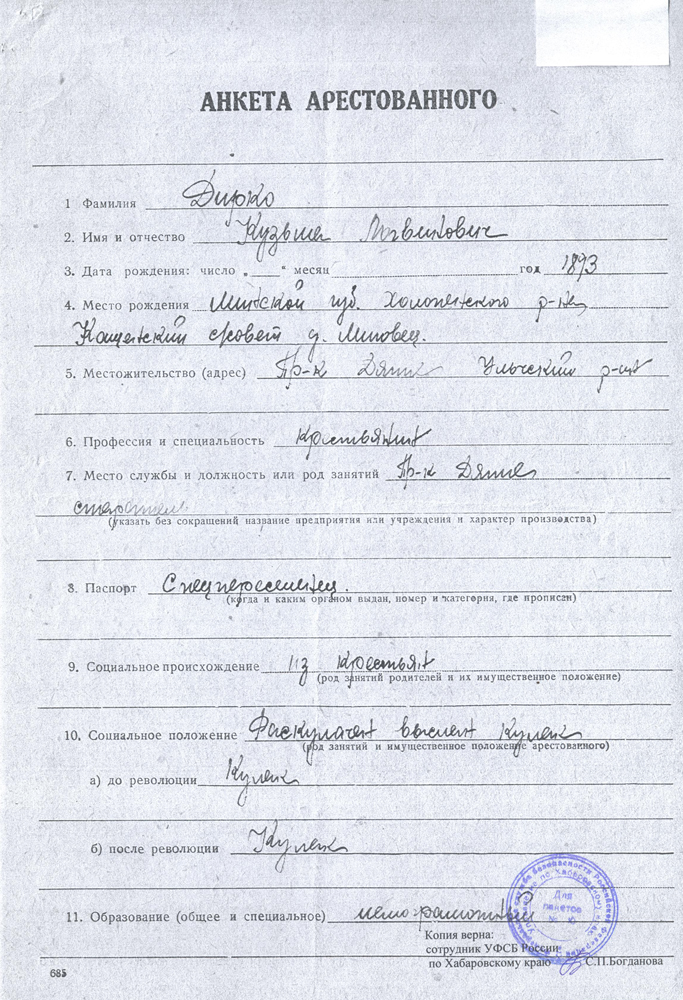 АНКЕТА АРЕСТОВАННОГО
1 Фамилия Дирко
2. Имя и отчество Кузьма Логвинович
3. Дата рождения: число „ “ месяц год 1893
4. Место рождения Минской губ. Холопеничского р-на
сковет д. Миговец.
5. Местожительство (адрес) Пр-к Дяппе Ульчский р-он
6. Профессия и специальность крестьянин
7. Место службы и должность или род занятий Пр-к Дяппе
старатель
(указать без сокращений название предприятия или учреждения и характер производства)
8. Паспорт Спецпереселенец.
(когда и каким органом выдан, номер и категория, где прописан)
9. Социальное происхождение из крестьян
(род занятий родителей и их имущественное положение)
10. Социальное положение Раскулачен выслан кулак
(род занятий и имущественное положение арестованного)
а) до революции Кулак
б) после революции Кулак
11. Образование (общее и специальное) малограмотный
Для
пакетов
№ 10
Копия верна:
сотрудник УФСБ России
по Хабаровскому краю С.П.Богданова
685